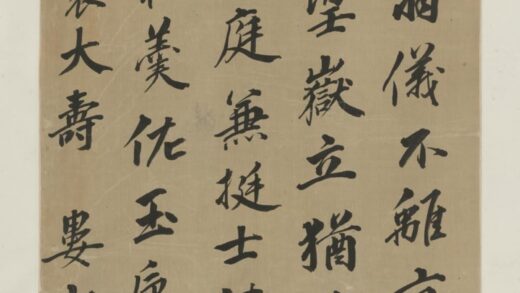 儀不離
堂嶽立猶
庭兼挺士
羹佐玉
大壽 婁